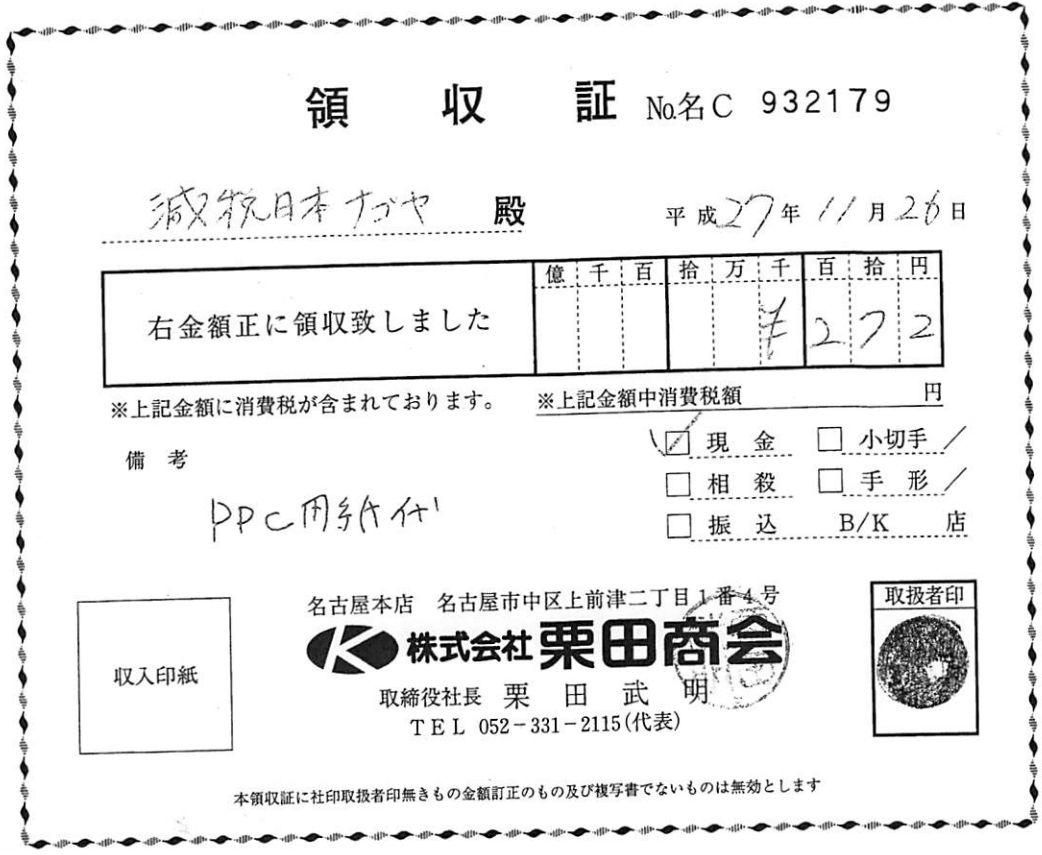 領収証 No.名C 932179
減税日本ナゴヤ 殿
平成27年11月26日
億千百拾万千百拾円
右金額正に領収致しました
¥272
※上記金額に消費税が含まれております。
※上記金額中消費税額 円
備考
現金 小切手
相殺 手形
振込 B/K 店
PPC用紙代
収入印紙
名古屋本店 名古屋市中区上前津二丁目1番4号
K 株式会社 栗田商会
取締役社長 栗田武明
TEL 052-331-2115(代表)
取扱者印
本領収証に社印取扱者印無きもの金額訂正のもの及び複写書でないものは無効とします